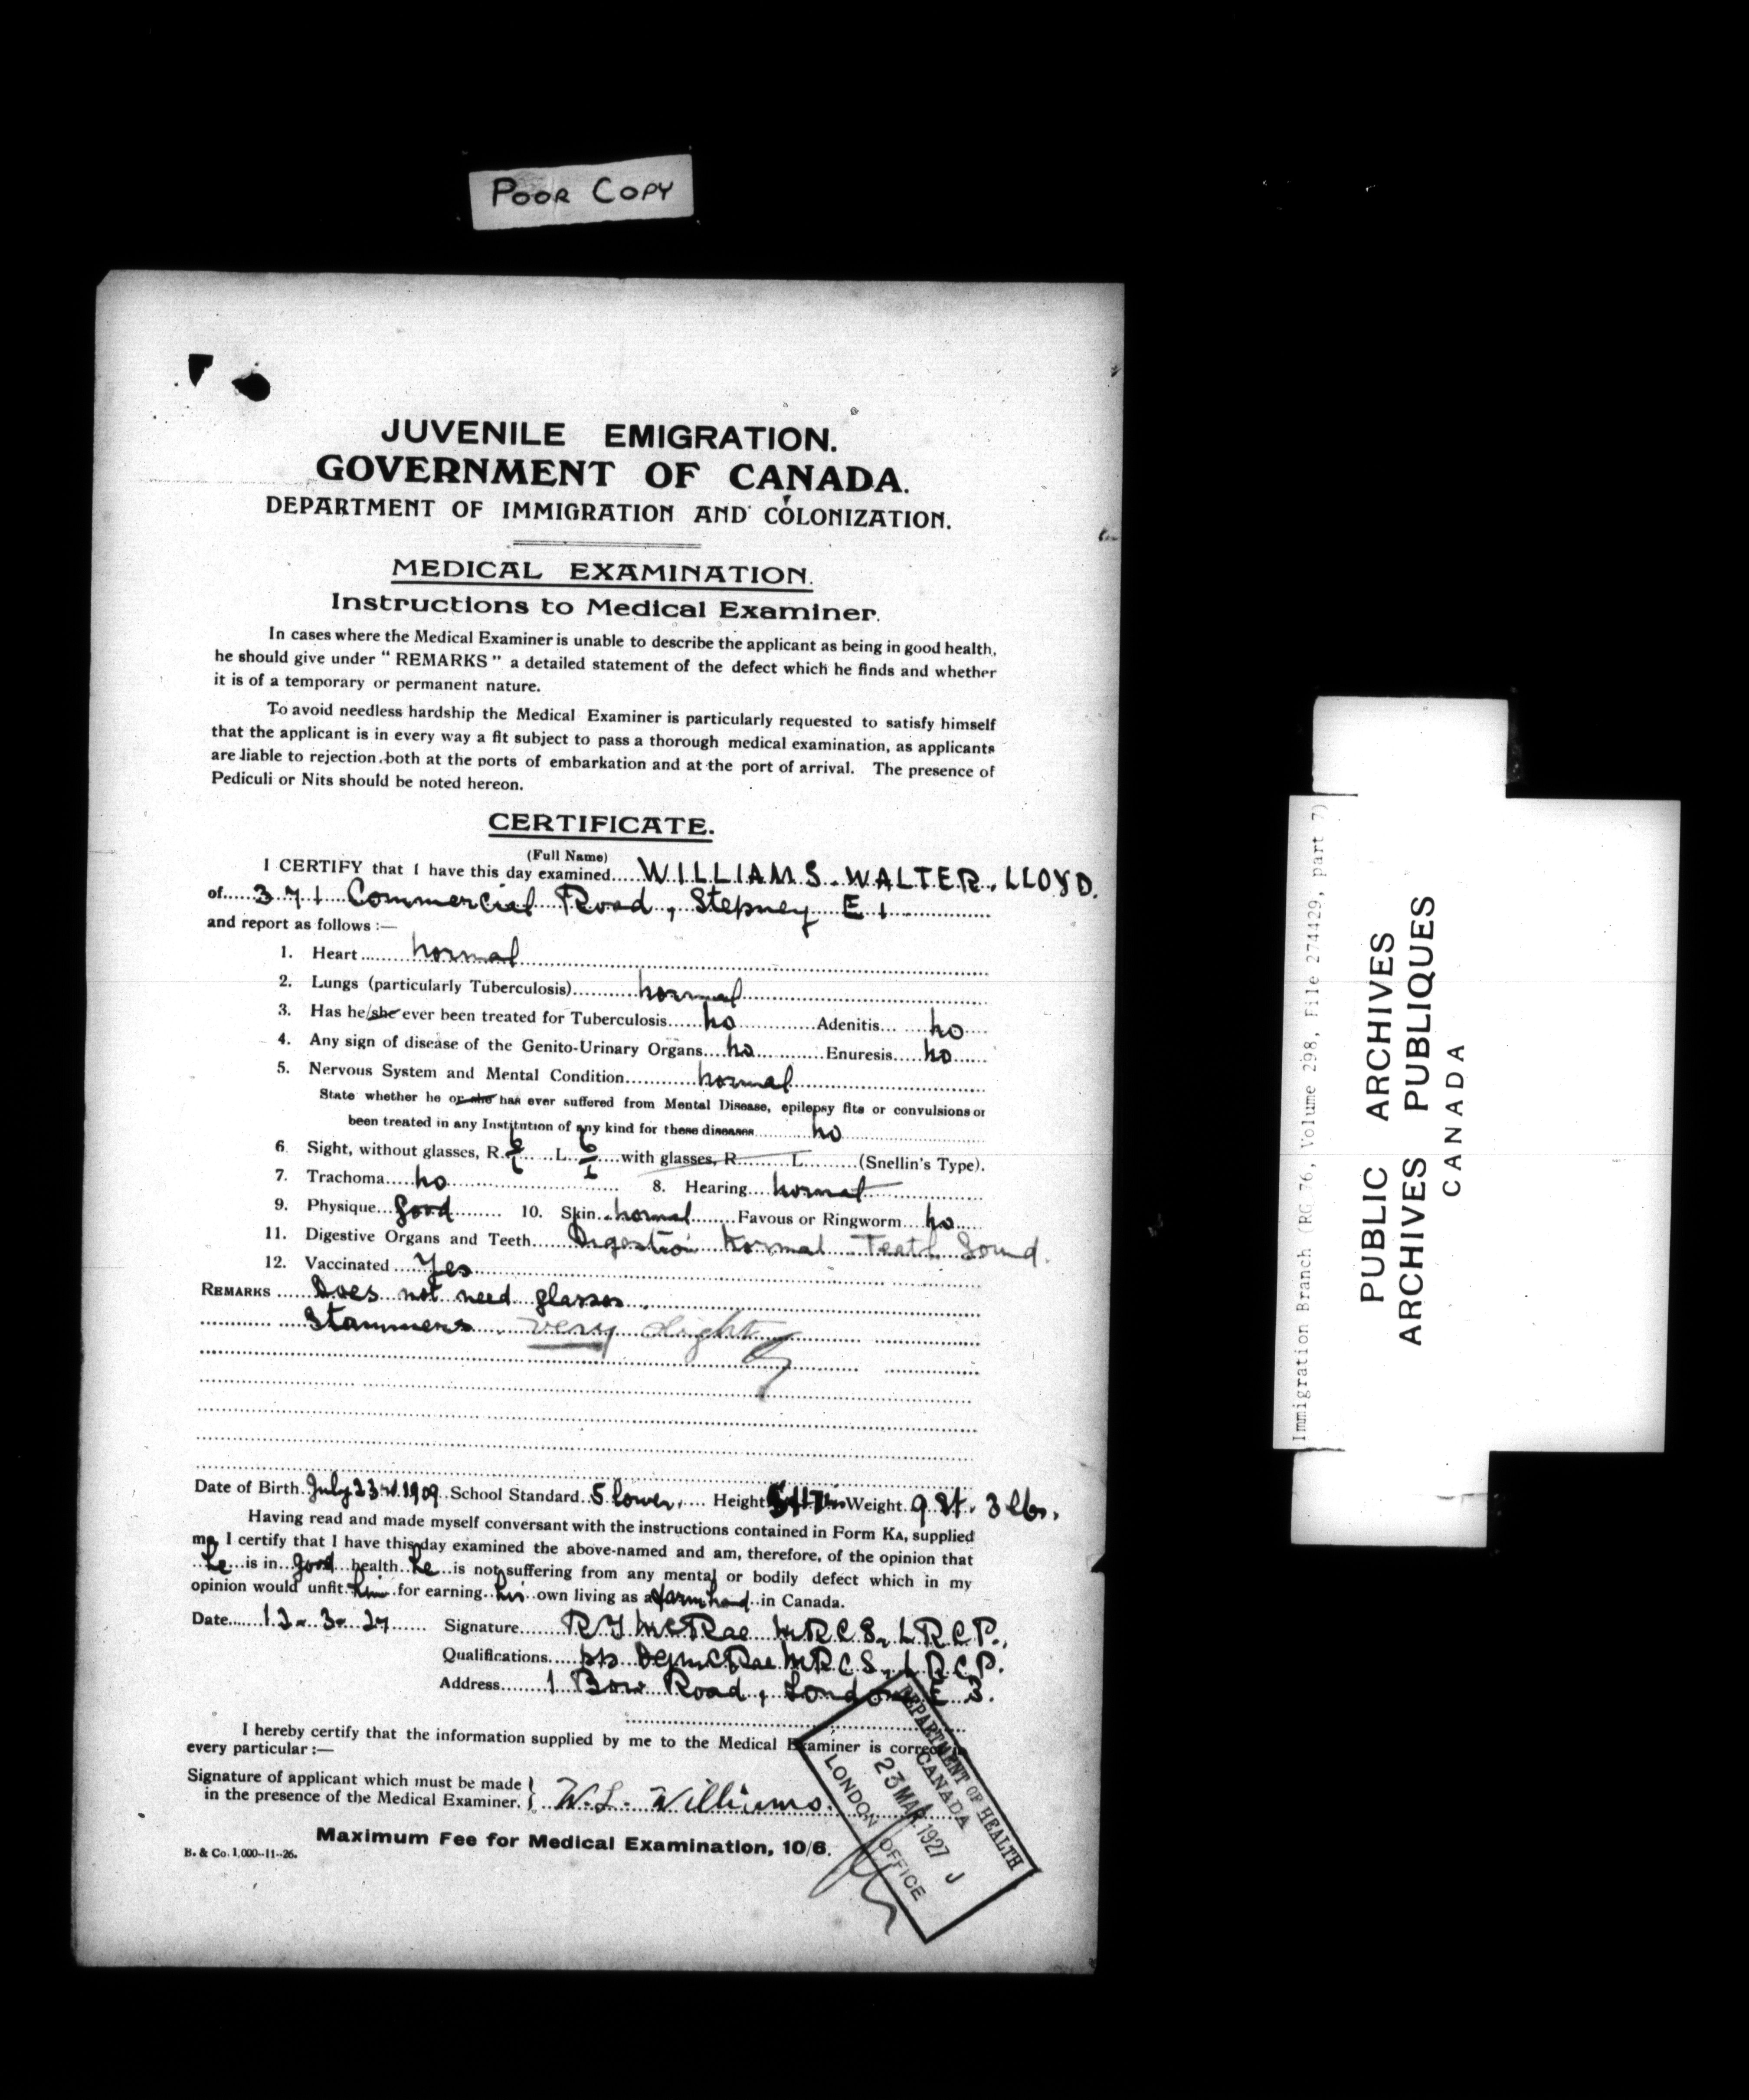 POOR COPY
JUVENILE EMIGRATION.
GOVERNMENT OF CANADA.
DEPARTMENT OF IMMIGRATION AND COLONIZATION.
MEDICAL EXAMINATION.
Instructions to Medical Examiner.
In cases where the Medical Examiner is unable to describe the applicant as being in good health,
he should give under "REMARKS" a detailed statement of the defect which he finds and whether
it is of a temporary or permanent nature.
To avoid needless hardship the Medical Examiner is particularly requested to satisfy himself
that the applicant is in every way a fit subject to pass a thorough medical examination, as applicants
are liable to rejection both at the ports of embarkation and at the port of arrival. The presence of
Pediculi or Nits should be noted hereon.
CERTIFICATE.
(Full Name)
I CERTIFY that I have this day examined WILLIAMS. WALTER. LLOYD.
of 371 Commercial Road, Stepney E1
and report as follows :—
1. Heart normal
2. Lungs (particularly Tuberculosis) normal
3. Has he/she ever been treated for Tuberculosis no Adenitis no
4. Any sign of disease of the Genito-Urinary Organs no Enuresis no
5. Nervous System and Mental Condition normal
State whether he or she has ever suffered from Mental Disease, epilepsy fits or convulsions or
been treated in any Institution of any kind for these diseases no
6. Sight, without glasses, R. 6/6 L. with glasses, R. L. (Snellin's Type).
7. Trachoma no 8. Hearing normal
9. Physique Good 10. Skin normal Favous or Ringworm no
11. Digestive Organs and Teeth Digestion Normal Teeth Sound.
12. Vaccinated Yes
REMARKS Does not need glasses.
Stammers very slight
Date of Birth July 23rd 1909 School Standard 5 lower. Height 5ft 7in Weight 9 St. 3 lbs.
Having read and made myself conversant with the instructions contained in Form KA, supplied
me, I certify that I have this day examined the above-named and am, therefore, of the opinion that
he is in good health he is not suffering from any mental or bodily defect which in my
opinion would unfit him for earning his own living as a farm hand in Canada.
Date 12-3-27 Signature R J McRae M.R.C.S., L.R.C.P.,
Qualifications McRae M.R.C.S., L.R.C.P.
Address 1 Bow Road, London E 3.
I hereby certify that the information supplied by me to the Medical Examiner is correct in
every particular :—
Signature of applicant which must be made
in the presence of the Medical Examiner. W. L. Williams.
Maximum Fee for Medical Examination, 10/6.
B. & Co. 1,000--11--26.
DEPARTMENT OF HEALTH
CANADA
23 MAR. 1927 J
LONDON OFFICE
Immigration Branch (RG 76, Volume 298, File 274429, part 7)
PUBLIC ARCHIVES
ARCHIVES PUBLIQUES
CANADA